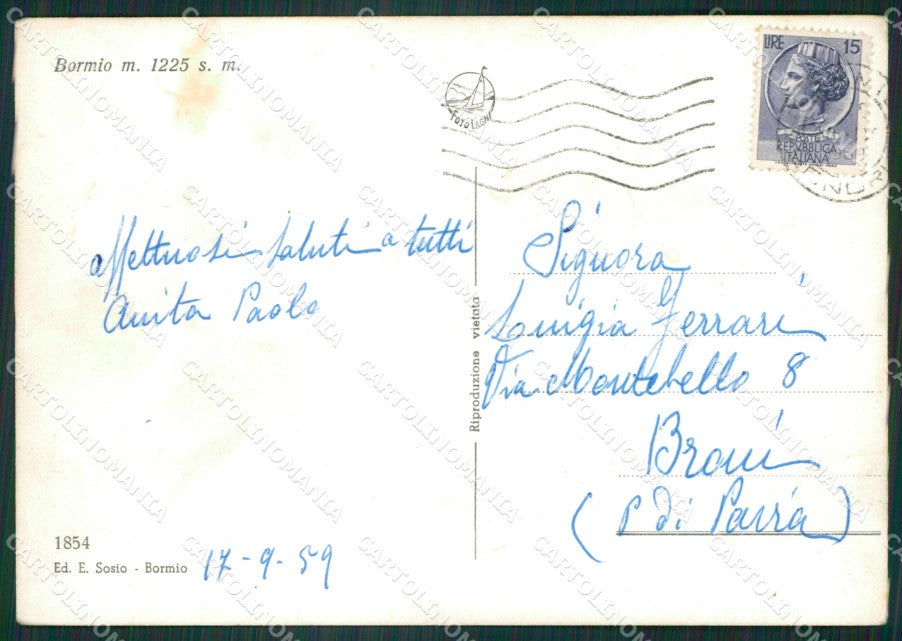 Bormio m. 1225 s. m.
FOTO LAGNI
LIRE 15
REPVBBLICA
ITALIANA
affettuosi saluti a tutti
Anita Paolo
Signora
Luigia Ferrari
Via Montebello 8
Broni
(P di Pavia)
Riproduzione vietata
1854
Ed. E. Sosio - Bormio
17-9-59
CARTOLINOMANIA